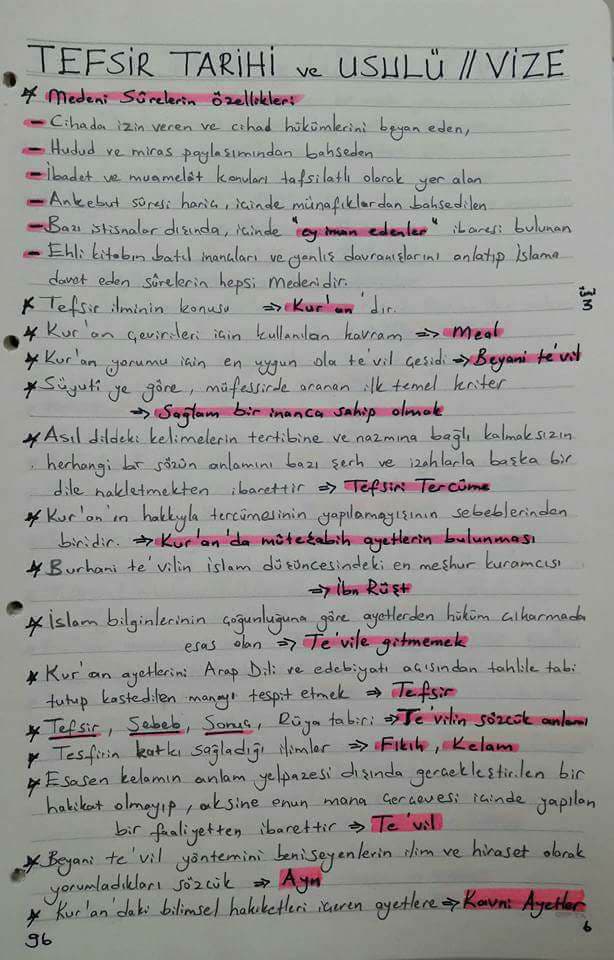 TEFSİR TARİHİ ve USULÜ // VİZE
* Medeni Sûrelerin özellikleri
- Cihada izin veren ve cihad hükümlerini beyan eden,
- Hudud ve miras paylaşımından bahseden
- İbadet ve muamelât konuları tafsilatlı olarak yer alan
- Ankebut sûresi hariç, içinde münafıklardan bahsedilen
- Bazı istisnalar dışında, içinde "ey iman edenler" ibaresi bulunan
- Ehli kitabın batıl inançları ve yanlış davranışlarını anlatıp İslama
davet eden sûrelerin hepsi Medenidir.
* Tefsir ilminin konusu ⇒ Kur'an'dır.
3
* Kur'an çevirileri için kullanılan kavram ⇒ Meal
* Kur'an yorumu için en uygun ola te'vil çeşidi ⇒ Beyani te'vil
* Süyuti'ye göre, müfessirde aranan ilk temel kriter
⇒ Sağlam bir inanca sahip olmak
* Asıl dildeki kelimelerin tertibine ve nazmına bağlı kalmaksızın
herhangi bir sözün anlamını bazı şerh ve izahlarla başka bir
dile nakletmekten ibarettir ⇒ Tefsiri Tercüme
* Kur'an'ın hakkıyla tercümesinin yapılamayışının sebeblerinden
biridir. ⇒ Kur'an'da müteşabih ayetlerin bulunması
* Burhani te'vilin islam düşüncesindeki en meşhur kuramcısı
⇒ İbn Rüşt
* İslam bilginlerinin çoğunluğuna göre ayetlerden hüküm çıkarmada
esas olan ⇒ Te'vile gitmemek
* Kur'an ayetlerini Arap Dili ve edebiyatı açısından tahlile tabi
tutup kastedilen manayı tespit etmek ⇒ Tefsir
* Tefsir, Sebeb, Sonuç, Rüya tabiri ⇒ Te'vilin sözcük anlamı
* Tesfirin katkı sağladığı ilimler ⇒ Fıkıh, Kelam
* Esasen kelamın anlam yelpazesi dışında gerçekleştirilen bir
hakikat olmayıp, aksine onun mana çerçevesi içinde yapılan
bir faaliyetten ibarettir ⇒ Te'vil
* Beyani te'vil yöntemini beniseyenlerin ilim ve hiraset olarak
yorumladıkları sözcük ⇒ Ayn
* Kur'an'daki bilimsel hakiketleri içeren ayetlere ⇒ Kavni Ayetler
96
6